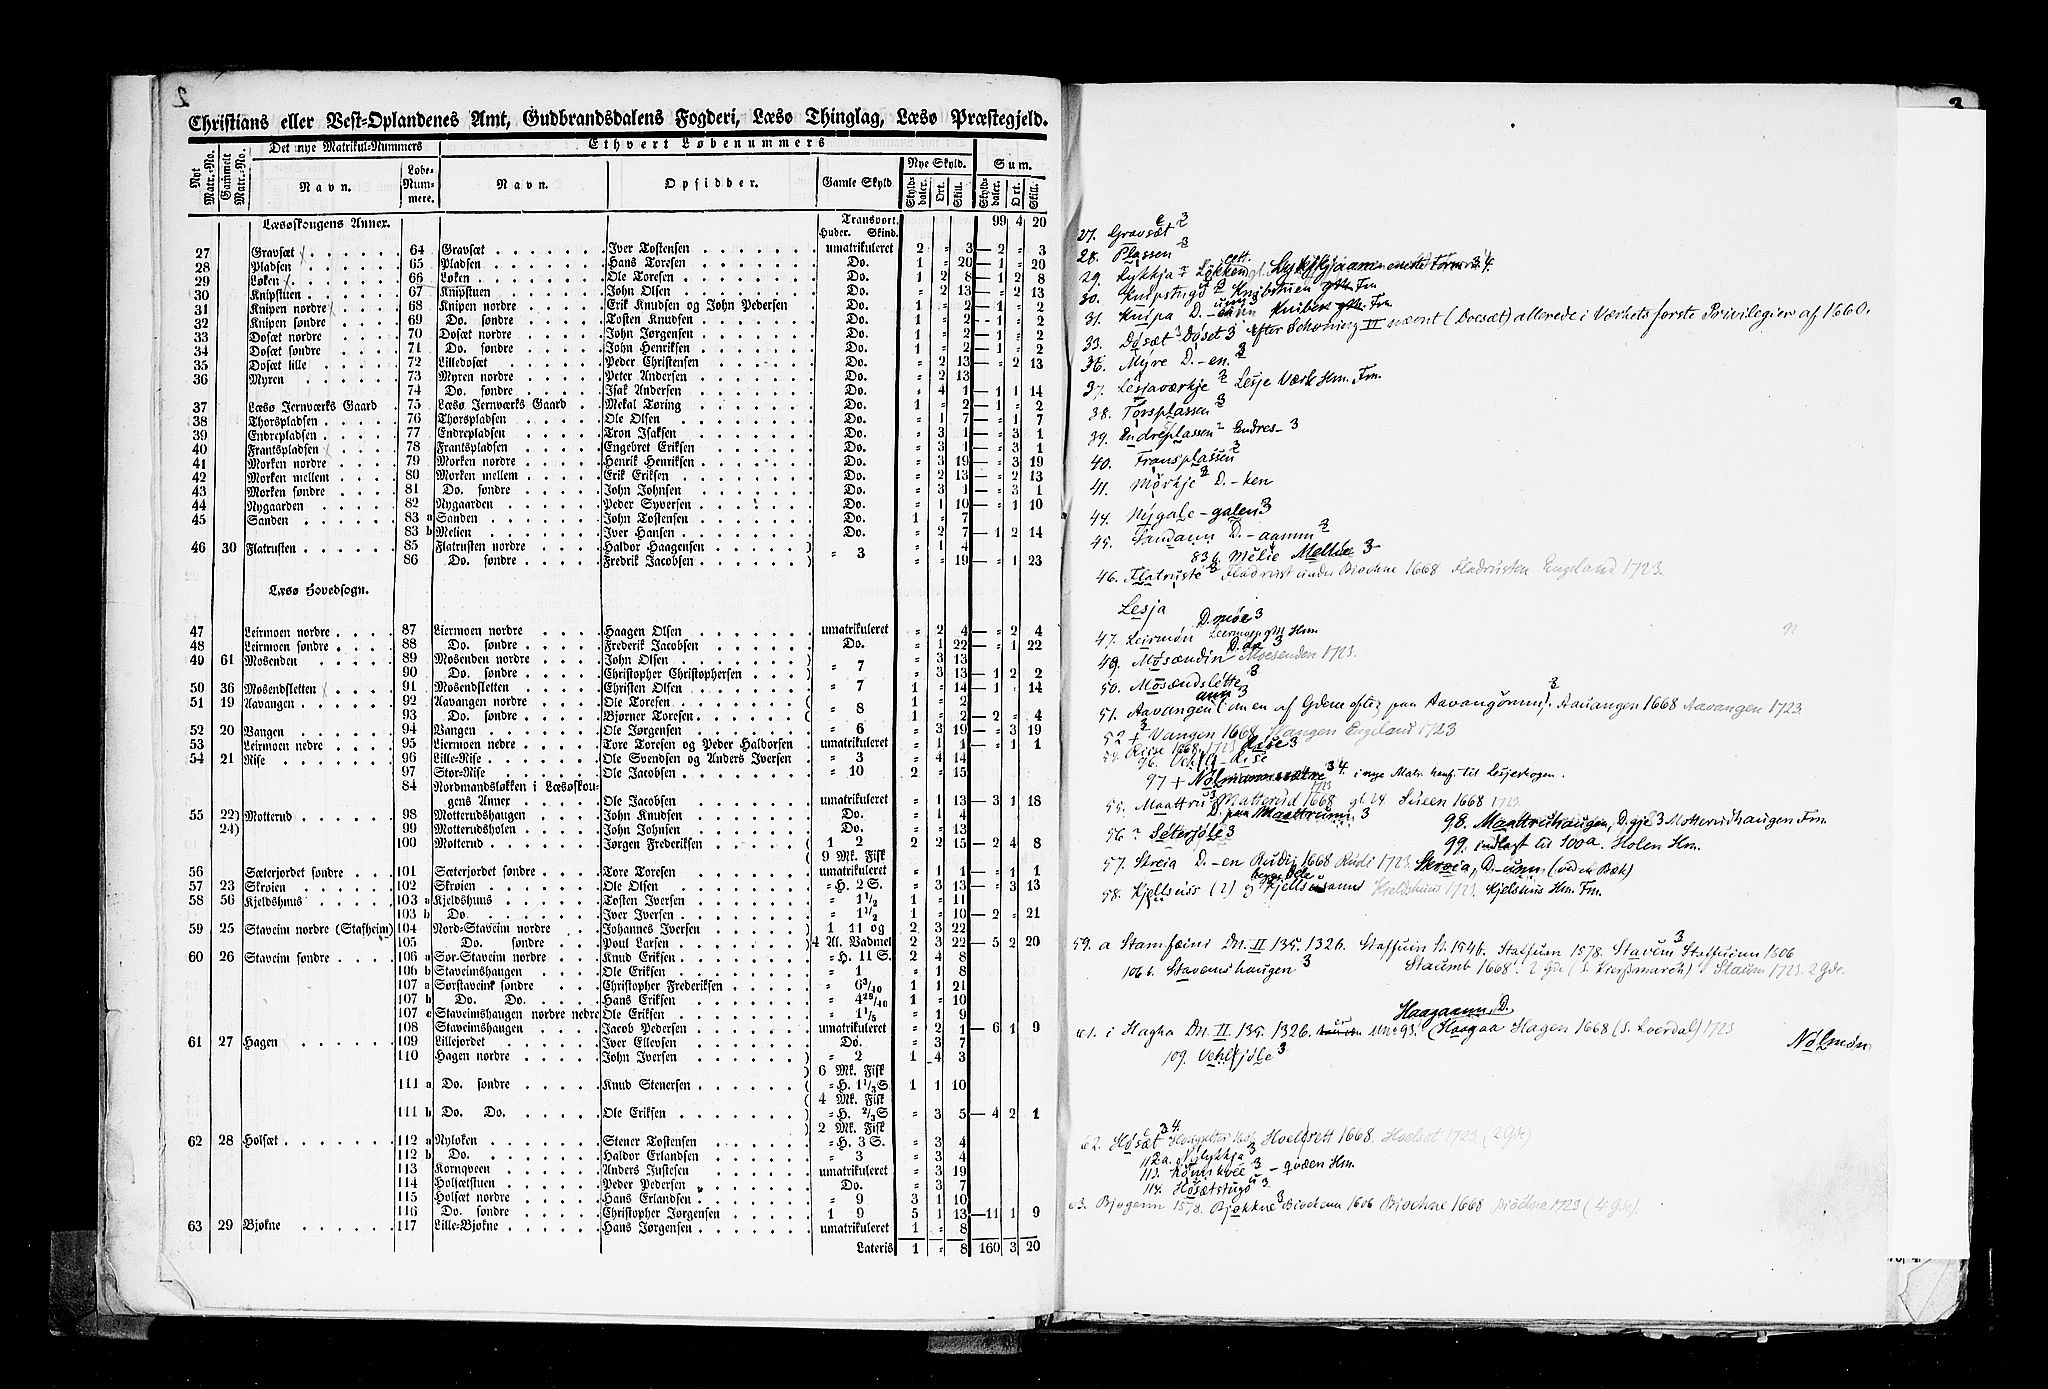 2
Christians eller Vest-Oplandenes Amt, Gudbrandsdalens Fogderi, Læsø Thinglag, Læsø Præstegjeld.
Nyt Matr.-No. Gammelt Matr.-No. Det nye Matrikul-Nummers Ethvert Løbenummers
Navn. Løbe-Nummere. Navn. Opsidder. Gamle Skyld Nye Skyld. Sum.
Skylddaler. Ort. Skill. Skylddaler. Ort. Skill.
Læsøskougens Annex. Transport. 99 4 20
Huder. Skind.
27 Gravsæt 64 Gravsæt Iver Tostensen umatrikuleret 2 = 3 — 2 = 3
28 Pladsen 65 Pladsen Hans Toresen Do. 1 = 20 — 1 = 20
29 Løken 66 Løken Ole Toresen Do. 1 2 8 — 1 2 8
30 Knipstuen 67 Knipstuen John Olsen Do. = 2 13 — = 2 13
31 Knipen nordre 68 Knipen nordre Erik Knudsen og John Pedersen Do. 1 = 2 — 1 = 2
32 Knipen søndre 69 Do. søndre Tosten Knudsen Do. 1 = 2 — 1 = 2
33 Dosæt nordre 70 Dosæt nordre John Jørgensen Do. 1 = 2 — 1 = 2
34 Dosæt søndre 71 Do. søndre John Henriksen Do. 1 = 2 — 1 = 2
35 Dosæt lille 72 Lilledosæt Peder Christensen Do. = 2 13 — = 2 13
36 Myren 73 Myren nordre Peter Andersen Do. = 2 13
74 Do. søndre Isak Andersen Do. = 4 1 — 1 1 14
37 Læsø Jernværks Gaard 75 Læsø Jernværks Gaard Mekal Tøring Do. 1 = 2 — 1 = 2
38 Thorspladsen 76 Thorspladsen Ole Olsen Do. = 1 7 — = 1 7
39 Endrepladsen 77 Endrepladsen Tron Isaksen Do. = 3 1 — = 3 1
40 Frantspladsen 78 Frantspladsen Engebret Eriksen Do. = 3 1 — = 3 1
41 Morken nordre 79 Morken nordre Henrik Henriksen Do. = 3 19 — = 3 19
42 Morken mellem 80 Morken mellem Erik Eriksen Do. = 2 13 — = 2 13
43 Morken søndre 81 Do. søndre John Johnsen Do. = 3 1 — = 3 1
44 Nygaarden 82 Nygaarden Peder Syversen Do. = 1 10 — = 1 10
45 Sanden 83 a Sanden John Tostensen Do. 1 = 7
83 b Melien Iver Hansen Do. = 2 7 — 1 2 14
46 30 Flatrusten 85 Flatrusten nordre Haldor Haagensen ) = 3 = 1 4
86 Do. søndre Fredrik Jacobsen ) = = 19 — = 1 23
Læsø Hovedsogn.
47 Leirmoen nordre 87 Liermoen nordre Haagen Olsen umatrikuleret = 2 4 — = 2 4
48 Leirmoen søndre 88 Do. søndre Frederik Jacobsen Do. = 1 22 — = 1 22
49 61 Mosenden 89 Mosenden nordre John Olsen ) = 7 = 3 13
90 Do. søndre Christopher Christophersen ) = 3 13 — 1 2 2
50 36 Mosendsletten 91 Mosendsletten Christen Olsen = 7 1 = 14 — 1 = 14
51 19 Aavangen 92 Aavangen nordre Ole Toresen ( = 8 1 = 2
93 Do. søndre Bjørner Toresen ( 1 = 2 — 2 = 4
52 20 Vangen 94 Vangen Ole Jørgensen = 6 = 3 19 — = 3 19
53 Leirmoen nedre 95 Liermoen nedre Tore Toresen og Peder Haldorsen umatrikuleret = 1 1 — = 1 1
54 21 Rise 96 Lille-Rise Ole Svendsen og Anders Iversen = 3 = 4 14
97 Stor-Rise Ole Jacobsen = 10 2 = 15
84 Nordmandsløkken i Læsøskou-
gens Annex Ole Jacobsen umatrikuleret = 1 13 — 3 1 18
55 22) Motterud 98 Motterudshaugen John Knudsen Do. = 1 4
24) 99 Motterudsholen John Johnsen Do. = = 13
100 Motterud Jørgen Frederiksen ( 1 2 2 2 15 — 2 4 8
( 9 Mk. Fisk
56 Sæterjordet søndre 101 Sæterjordet søndre Tore Toresen umatrikuleret = 1 1 — = 1 1
57 23 Skrøien 102 Skrøien Ole Olsen = H. 2 S. = 3 13 — = 3 13
58 56 Kjeldshuus 103 a Kjeldshuus Tosten Iversen = 1 1/2 1 = 11
103 b Do. Iver Iversen = 1 1/2 1 = 10 — 2 = 21
59 25 Staveim nordre (Stafheim) 104 Nord-Staveim nordre Johannes Iversen ) 1 11 og 2 3 22
105 Do. søndre Poul Larsen ) 4 Al. Vadmel 2 3 22 — 5 2 20
60 26 Staveim søndre 106 a Sør-Staveim nordre Knud Eriksen = H. 11 S. 2 4 8
106 b Staveimshaugen Ole Eriksen = 1 = 1 8
107 a Sørstaveink søndre Christopher Frederiksen = 6 3/40 1 1 21
107 b Do. Do. Hans Eriksen = 4 29/40 1 = 10
107 c Staveimshaugen nordre nedre Ole Eriksen = 1 1/5 = 1 9
108 Staveimshaugen Jacob Pedersen umatrikuleret = 2 1 — 6 1 9
61 27 Hagen 109 Lillejordet Iver Ellevsen Do. = 3 7
110 Hagen nordre John Iversen ) = 2 1 4 3
) 6 Mk. Fisk
111 a Do. søndre Knud Stenersen ( = H. 1 1/3 S 1 1 10
( 4 Mk. Fisk
111 b Do. Do. Ole Eriksen ) = H. 2/3 S = 3 5 — 4 2 1
) 2 Mk. Fisk
62 28 Holsæt 112 a Nyløken Stener Tostensen = H. 3 S. = 3 4
112 b Do. Haldor Erlandsen = 3 = 3 4
113 Kornqveen Anders Justesen umatrikuleret = 3 19
114 Holsætstuen Peder Pedersen Do. = 3 7
115 Holsæt nordre Hans Erlandsen = 9 3 1 10
116 Do. søndre Christopher Jørgensen 1 9 5 1 13 — 11 1 9
63 29 Bjøkne 117 Lille-Bjøkne Hans Jørgensen umatrikuleret 1 = 8
Lateris 1 = 8 160 3 20
27. Gravsæt 3
28. Plassen 3
29. Lykkja Løkken
30. Knipstugo Knibstuen Fm
31. Knipa D.
33. Døsæt Døset 3 efter Schøning II nævnt (Doesæt) allerede i Værkets første Privilegier af 1660.
36. Myre D. -en 3
37. Lesjaverkje Lesje Værk Hm. Fm.
38. Torsplassen 3
39. Endreplassen Endres- 3
40. Fransplassen
41. Mørkje D. -ken
44. Nygale -galen 3
45. Sandann D. -aamm
83 b. Melie Mellie 3
46. Flatruste Fladrust under Biochne 1668 Fladrusten Engeland 1723.
Lesja
47. Leirmøn D. møe 3 Hm.
49. Møsændin Moesenden 1723.
50. Møsændslette 3
51. Aavangen en af Gdene Aauangen 1668 Aavangen 1723.
52 + Vangen 1668 Engeland 1723
54. Riise 1668. 1723 Rise 3
96. Rise
97 + Nolmannssætre 3 4. i nye Matr. henf. til Lesjeskogen.
55. Maattru Matterud 1668 gl. 24. Sueen 1668 1723
D. Maattrumm 3 98. Maattruhaugen, D. gje 3 Motterudhaugen Fm.
56. Seterjøle 3 99. indlagt til 100 a. Holen Hm.
57. Skreia D. -en Rudi 1668 Rudi 1723 Skrøia, D.
58. Kjellsuss (2) Kjeldshuus 1723. Kjelshus Hm. Fm.
59. a Stamfæimi Dn. II 135. 1326. Staffuin 1546. Staffum 1578. Stavum 3
106 b. Stavemshaugen 3 Staumb 1668. 2 Gde Staum 1723. 2 Gde.
Haagaamm, D.
61. i Hagha Dn. II 135. 1326. Haagaa Hagen 1668 1723
Nolmøn
109. Vehljøle 3
62. Høsæt 3 4. Hoelsett 1668. Hoelset 1723 (2 Gde)
112 a. Nylykkja 3
113. Kønnskvee 3 -qvæen Hm.
114. Høsætstugo 3
63. Bjøgenn 1578. Bjøkkne 3 1606 Biochne 1668 Biöchne 1723 (4 Gde)